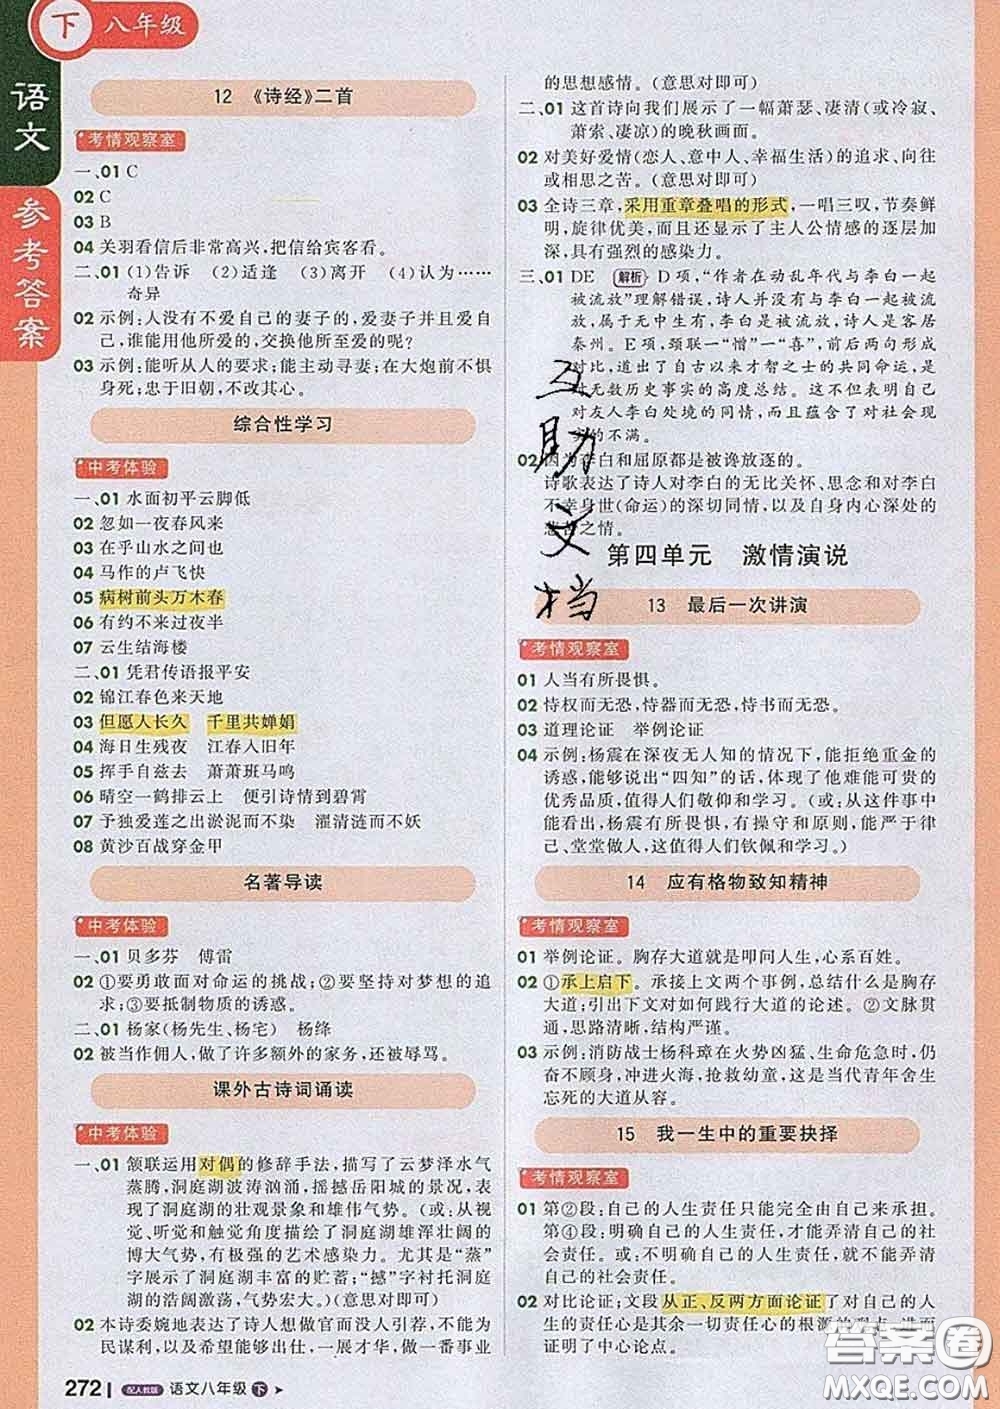 下 八年级
语文
参考答案
12 《诗经》二首
考情观察室
一、01 C
02 C
03 B
04 关羽看信后非常高兴,把信给宾客看。
二、01 (1)告诉 (2)适逢 (3)离开 (4)认为……
奇异
02 示例:人没有不爱自己的妻子的,爱妻子并且爱自
己,谁能用他所爱的,交换他所至爱的呢?
03 示例:能听从人的要求;能主动寻妻;在大炮前不惧
身死;忠于旧朝,不改其心。
综合性学习
中考体验
一、01 水面初平云脚低
02 忽如一夜春风来
03 在乎山水之间也
04 马作的卢飞快
05 病树前头万木春
06 有约不来过夜半
07 云生结海楼
二、01 凭君传语报平安
02 锦江春色来天地
03 但愿人长久 千里共婵娟
04 海日生残夜 江春入旧年
05 挥手自兹去 萧萧班马鸣
06 晴空一鹤排云上 便引诗情到碧霄
07 予独爱莲之出淤泥而不染 濯清涟而不妖
08 黄沙百战穿金甲
名著导读
中考体验
一、01 贝多芬 傅雷
02 ①要勇敢面对命运的挑战;②要坚持对梦想的追
求;③要抵制物质的诱惑。
二、01 杨家(杨先生、杨宅) 杨绛
02 被当作佣人,做了许多额外的家务,还被辱骂。
课外古诗词诵读
中考体验
一、01 颔联运用对偶的修辞手法,描写了云梦泽水气
蒸腾,洞庭湖波涛汹涌,摇撼岳阳城的景况,表
现了洞庭湖的壮观景象和雄伟气势。(或:从
视觉、听觉和触觉角度描绘了洞庭湖雄浑壮阔的
博大气势,有极强的艺术感染力。尤其是“蒸”
字展示了洞庭湖丰富的贮蓄;“撼”字衬托洞庭
湖的浩阔激荡,气势宏大。)(意思对即可)
02 本诗委婉地表达了诗人想做官而没人引荐,不能为
民谋利,以及希望能够出仕,一展才华,做一番事业
的思想感情。(意思对即可)
二、01 这首诗向我们展示了一幅萧瑟、凄清(或冷寂、
萧索、凄凉)的晚秋画面。
02 对美好爱情(恋人、意中人、幸福生活)的追求、向往
或相思之苦。(意思对即可)
03 全诗三章,采用重章叠唱的形式,一唱三叹,节奏鲜
明,旋律优美,而且还显示了主人公情感的逐层加
深,具有强烈的感染力。
三、01 DE 解析 D项,“作者在动乱年代与李白一起
被流放”理解错误,诗人并没有与李白一起被流
放,属于无中生有,李白是被流放,诗人是客居
秦州。E项,颈联一“憎”一“喜”,前后两句形成
对比,道出了自古以来才智之士的共同命运,是
对无数历史事实的高度总结。这不但表明自己
对友人李白处境的同情,而且蕴含了对社会现
实的不满。
02 因为李白和屈原都是被谗放逐的。
诗歌表达了诗人对李白的无比关怀、思念和对李白
不幸身世(命运)的深切同情,以及自身内心深处的
悲苦之情。
第四单元 激情演说
13 最后一次讲演
考情观察室
01 人当有所畏惧。
02 恃权而无恐,恃器而无恐,恃才而无恐。
03 道理论证 举例论证
04 示例:杨震在深夜无人知的情况下,能拒绝重金的
诱惑,能够说出“四知”的话,体现了他难能可贵的
优秀品质,值得人们敬仰和学习。(或:从这件事中
能看出,杨震有所畏惧,有操守和原则,能严于律
己、堂堂做人,这值得人们钦佩和学习。)
14 应有格物致知精神
考情观察室
01 举例论证。胸存大道就是叩问人生,心系百姓。
02 ①承上启下。承接上文两个事例,总结什么是胸存
大道;引出下文对如何践行大道的论述。②文脉贯
通,思路清晰,结构严谨。
03 示例:消防战士杨科璋在火势凶猛、生命危急时,仍
奋不顾身,冲进火海,抢救幼童,这是当代青年舍生
忘死的大道从容。
15 我一生中的重要抉择
考情观察室
01 第②段:自己的人生责任只能完全由自己来承担。
第④段:明确自己的人生责任,才能弄清自己的社
会责任。或:不明确自己的人生责任,就不能弄清
自己的社会责任。
02 对比论证;文段从正、反两方面论证了对自己的人
生的责任心是其余一切责任心的根源的观点,进而
证明了中心论点。
互助文档
答案圈
MXQE.COM
272 配人教版 语文八年级 下